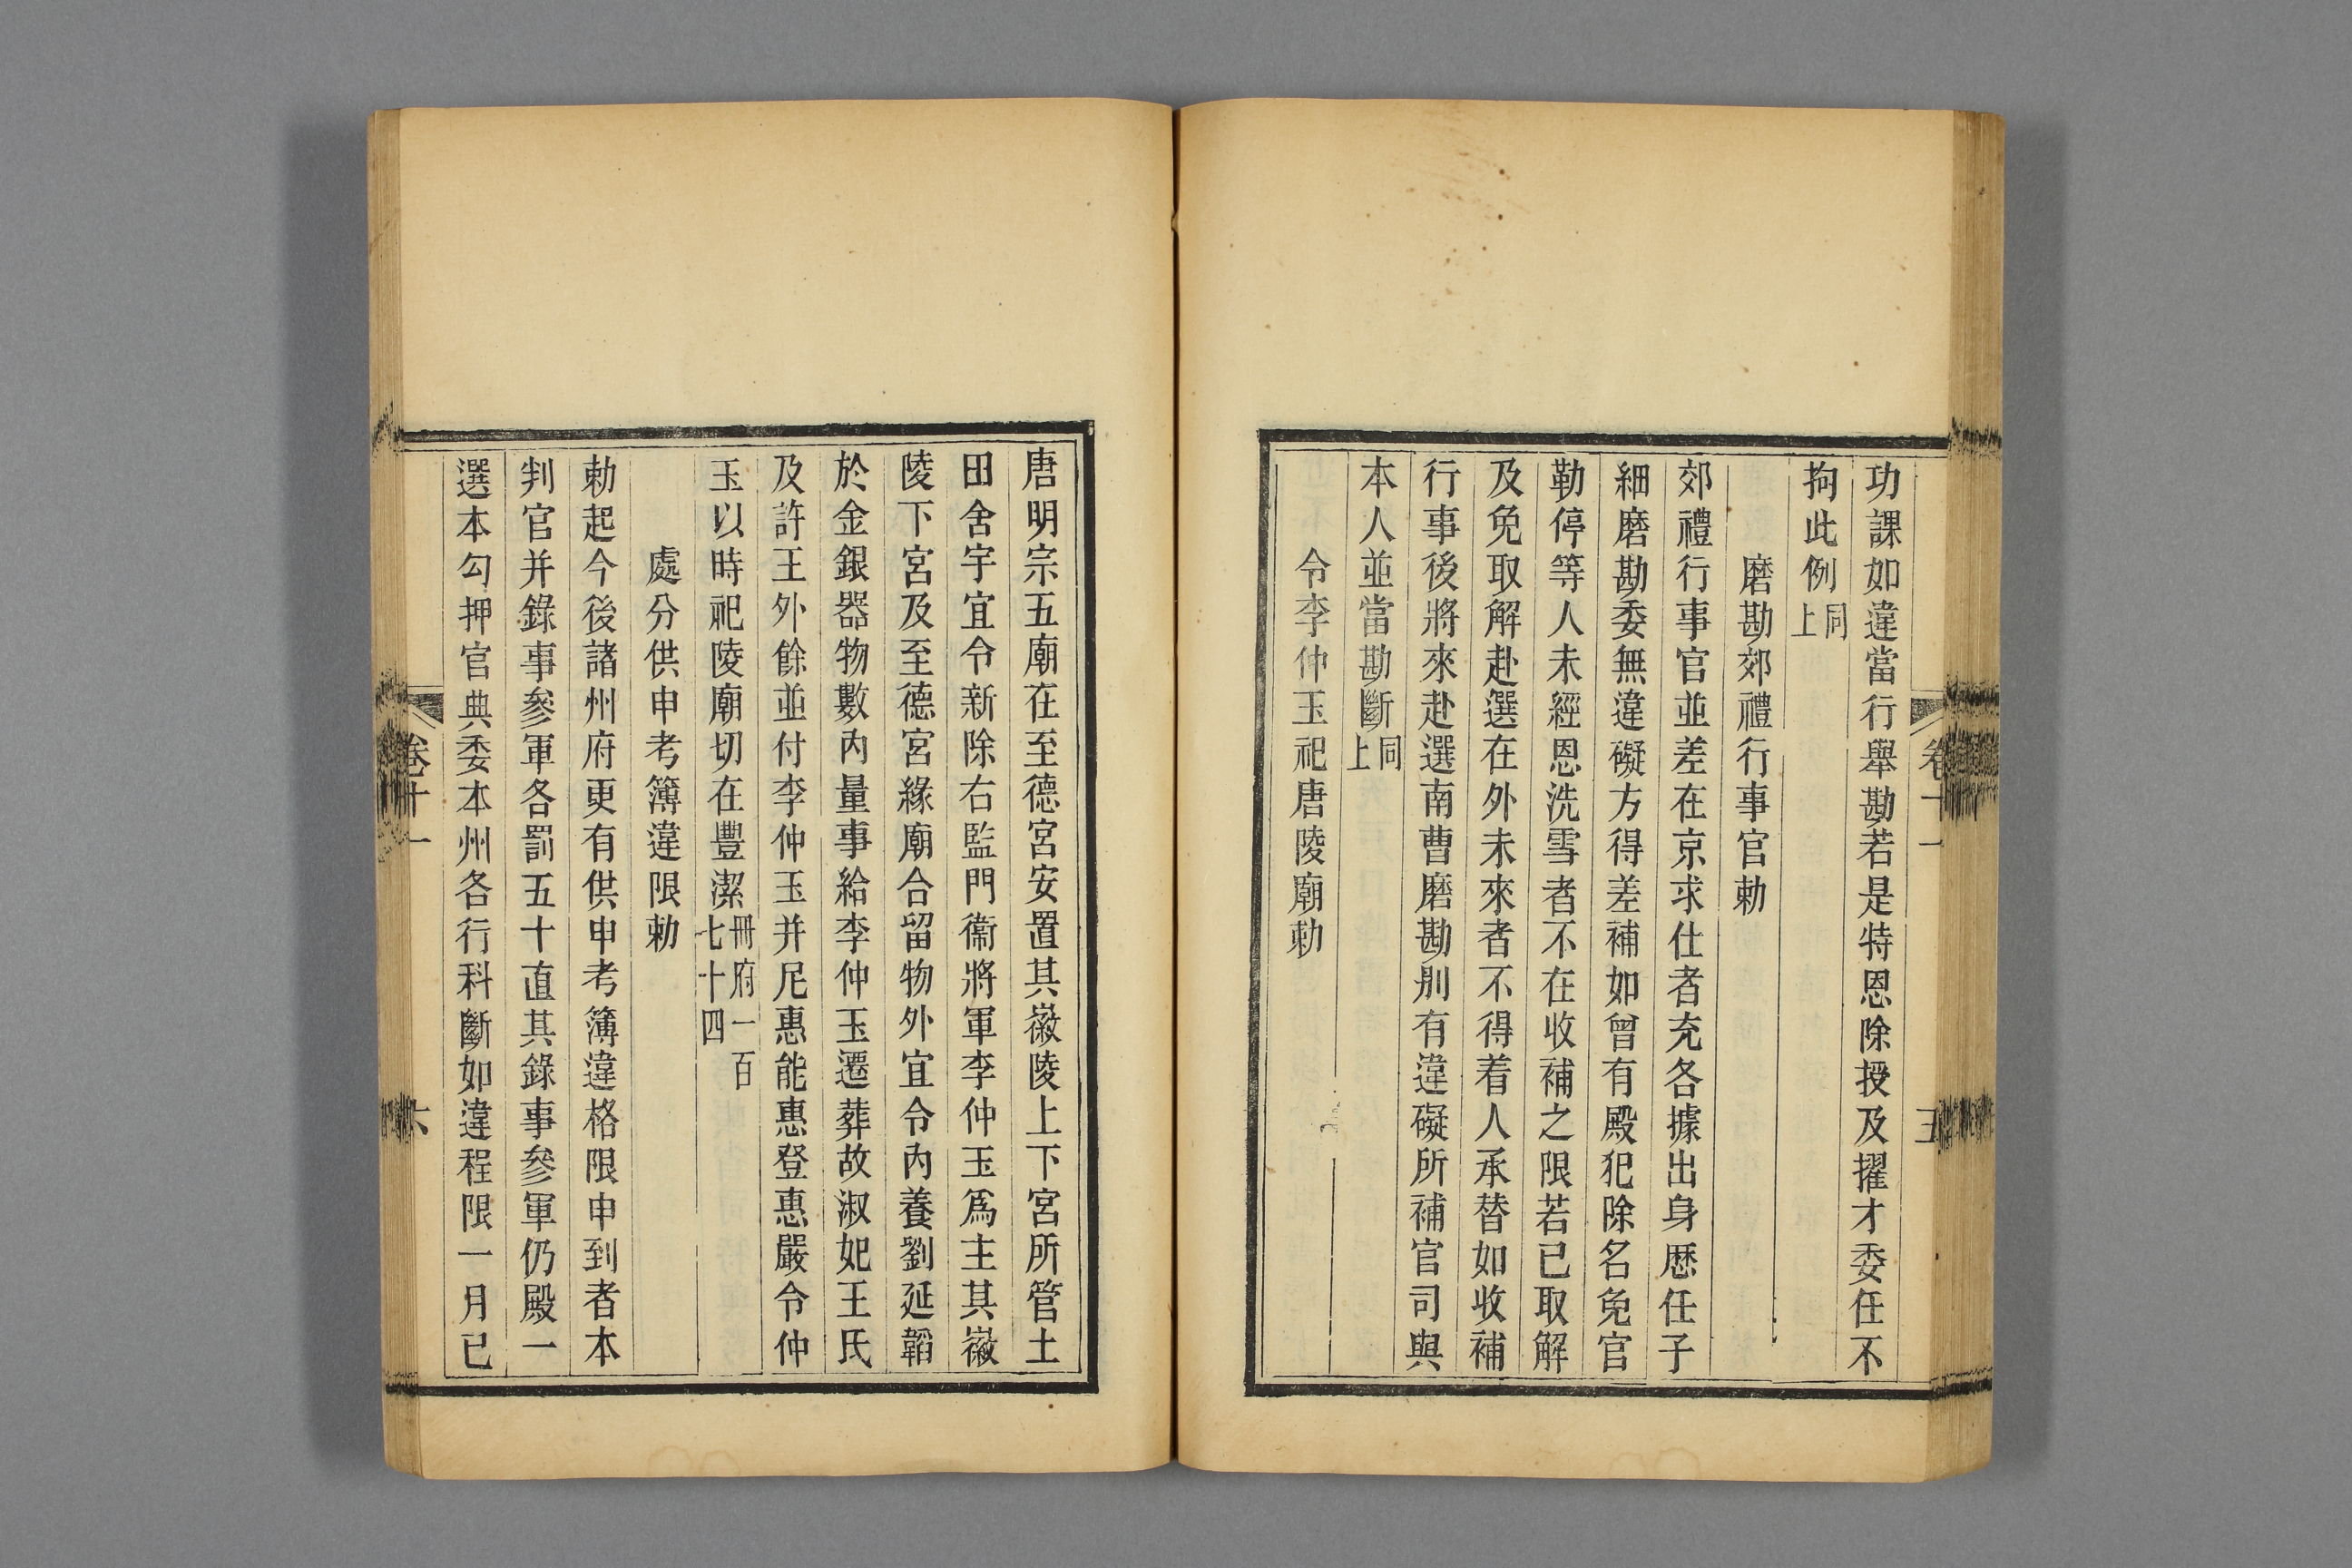 卷十一
五
功課如違當行舉勘若是特恩除授及擢才委任不
拘此例同上
磨勘郊禮行事官勅
郊禮行事官並差在京求仕者充各據出身歷任子
細磨勘委無違礙方得差補如曾有殿犯除名免官
勒停等人未經恩洗雪者不在收補之限若已取解
及免取解赴選在外未來者不得着人承替如收補
行事後將來赴選南曹磨勘刖有違礙所補官司與
本人並當勘斷同上
令李仲玉祀唐陵廟勅
唐明宗五廟在至德宮安置其徽陵上下宮所管土
田舍宇宜令新除右監門衞將軍李仲玉爲主其徽
陵下宮及至德宮緣廟合留物外宜令內養劉延韜
於金銀器物數內量事給李仲玉遷葬故淑妃王氏
及許王外餘並付李仲玉并尼惠能惠登惠嚴令仲
玉以時祀陵廟切在豐潔冊府一百七十四
處分供申考簿違限勅
勅起今後諸州府更有供申考簿違格限申到者本
判官并錄事參軍各罰五十直其錄事參軍仍殿一
選本勾押官典委本州各行科斷如違程限一月已
卷十一
六